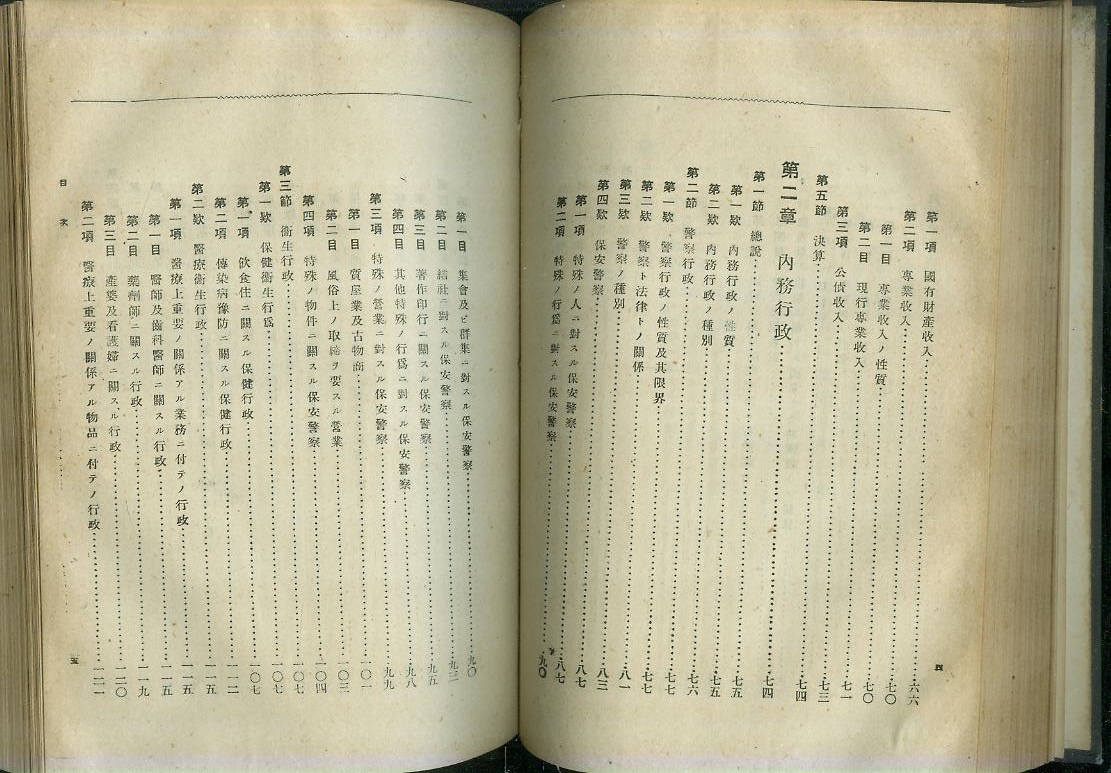 第一項 國有財産收入 六六
第二項 專業收入 七〇
第一目 專業收入ノ性質 七〇
第二目 現行專業收入 七〇
第三項 公債收入 七一
第五節 決算 七三
第二章 內務行政 七四
第一節 總說 七四
第一款 內務行政ノ性質 七五
第二款 內務行政ノ種別 七五
第二節 警察行政 七六
第一款 警察行政ノ性質及其限界 七七
第二款 警察ト法律トノ關係 七七
第三款 警察ノ種別 八一
第四款 保安警察 八三
第一項 特殊ノ人ニ對スル保安警察 八七
第二項 特殊ノ行爲ニ對スル保安警察 九〇
四
第一目 集會及ビ群集ニ對スル保安警察 九〇
第二目 結社ニ對スル保安警察 九三
第三目 著作印行ニ關スル保安警察 九五
第四目 其他特殊ノ行爲ニ對スル保安警察 九八
第三項 特殊ノ營業ニ對スル保安警察 九九
第一目 質屋業及古物商 一〇一
第二目 風俗上ノ取締ヲ要スル營業 一〇三
第四項 特殊ノ物件ニ關スル保安警察 一〇四
第三節 衞生行政 一〇七
第一款 保健衞生行爲 一〇七
第一項 飮食住ニ關スル保健行政 一〇七
第二項 傳染病豫防ニ關スル保健行政 一一二
第二款 醫療衞生行政 一一五
第一項 醫療上重要ノ關係アル業務ニ付テノ行政 一一五
第一目 醫師及齒科醫師ニ關スル行政 一一五
第二目 藥劑師ニ關スル行政 一一九
第三目 產婆及看護婦ニ關スル行政 一二〇
第二項 醫療上重要ノ關係アル物品ニ付テノ行政 一二一
目次
五